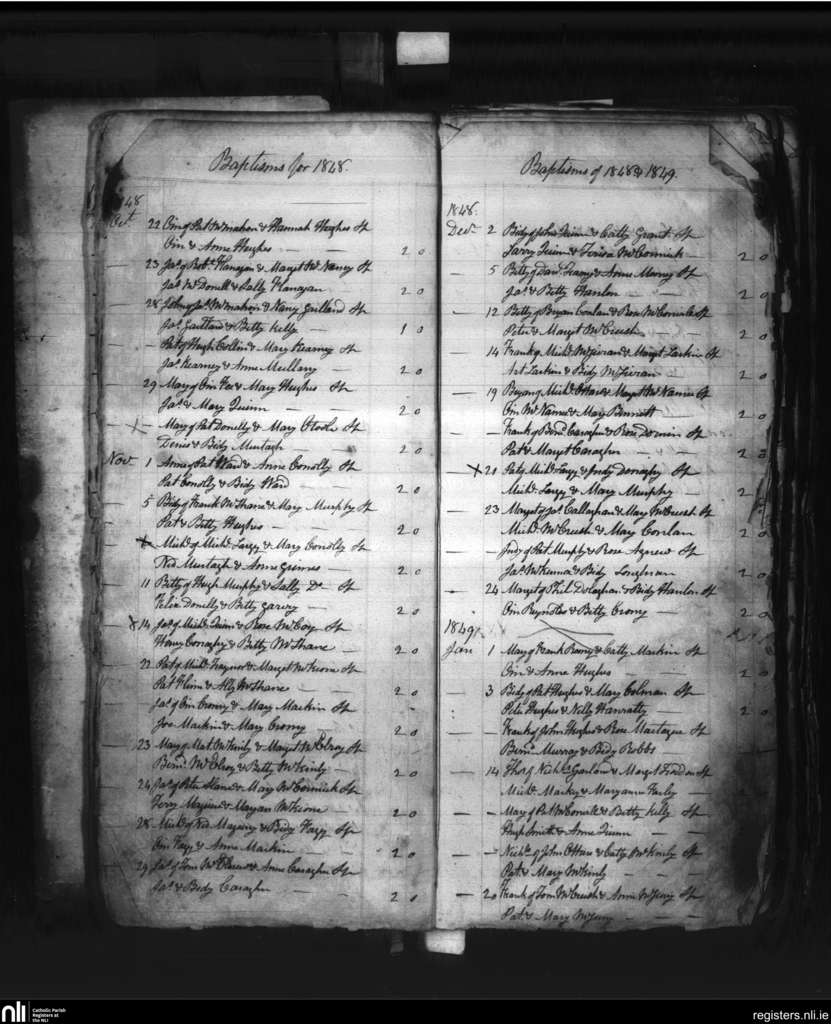 Baptisms for 1848.
1848
Oct 22 Ew of Pat McMahon & Hannah Hughes Sp
Ew & Anne Hughes — — 2 0
— 23 Jas of Robt Flanagan & Margt McNancy Sp
Jas McDonell & Sally Flanagan 2 0
— 28 John of Jas McMahon & Nancy Gartland Sp
Jas Gartland & Betty Kelly — 1 0
— — Pat of Hugh Collins & Mary Kearney Sp
Jas Kearney & Anne Mullany — 2 0
29 Mary of Ew Fee & Mary Hughes Sp
Jas & Mary Quinn — 2 0
— Mary of Pat Donelly & Mary O'Toole Sp
Denis & Bidy Murtagh — 2 0
Nov 1 Anne of Pat Ward & Anne Conolly Sp
Pat Conolly & Bidy Ward — 2 0
5 Bidy of Frank McShane & Mary Murphy Sp
Pat & Betty Hughes — — 2 0
— Michl of Michl & Mary Conolly Sp
Ned Murtagh & Anne Grimes — 2 0
11 Betty of Hugh Murphy & Sally Do Sp
Felix Donelly & Betty Garvey — 2 0
14 Jas of Michl Quinn & Rose McCoy Sp
Henry Conaghy & Betty McShane — 2 0
22 Pat of Michl Traynor & Margt McKeone Sp
Pat & Ally McShane — 2 0
Jas of Ew Cromy & Mary Mackin Sp
Jos Mackin & Mary Cromy — 2 0
23 Mary of Mat McKinly & Margt McElroy Sp
Bernd McElroy & Betty McKinly — 2 0
24 Jas of Peter & Mary McCormick Sp
Terry & McKeone — 2 0
28 Michl of Ned & Bidy Sp
Ew & Anne Mackin — 2 0
29 Jas of Tom & Anne Caragher Sp
Jas & Bidy Caragher — 2 0
Baptisms of 1848 & 1849.
1848.
Decr 2 Bidy of John Quinn & Catty Grant Sp
Larry Quinn & Teresa McCormick — 2 0
— 5 Betty of Danl & Anne Sp
Jas & Betty Hanlon — — 2 0
— 12 Betty of Bryan Conlan & Rose McCormick Sp
Peter & Margt McCreesh — 2 0
— 14 Frank of Michl McGivran & Margt Larkin Sp
Art Larkin & Bidy McGivran — 2 0
— 19 Bryan of Michl O'Hare & Margt McNamee Sp
Ew McNamee & Mary Bennett — 2 0
— — Frank of Bernd Caragher & Rose Sp
Pat & Margt Caragher — 2 0
20 Pat of Michl & Judy Donaghy Sp
Michl & Mary Murphy — 2 0
— 23 Margt of Jas Callaghan & Mary McCreesh Sp
Michl McCreesh & Mary Conlan — 2 0
— — Judy of Pat Murphy & Rose Agnew Sp
Jas McKenna & Bidy Loughran — 2 0
— 24 Margt of Phil Dolaghan & Bidy Hanlon Sp
Ew Reynolds & Betty Cromy — 2 0
1849
Jan 1 Mary of Frank & Catty Mackin Sp
Ew & Anne Hughes — — 2 0
— 3 Bidy of Pat Hughes & Mary Colman Sp
Peter Hughes & Nelly Hanratty — 2 0
— — Frank of John Hughes & Rose Sp
Bernd Murray & Bidy — —
— 14 Thos of Nichs & Margt Sp
Michl Mackey & Maryanne —
— — Mary of Pat McConvill & Betty Kelly Sp
Hugh Smith & Anne Quinn — —
— — Nichs of John O'Hare & Catty McKinly Sp
Pat & Mary McKinly — — —
— 20 Frank of Tom McCreesh & Anne Sp
Pat & Mary — — —
nli Catholic Parish
Registers at
the NLI
registers.nli.ie